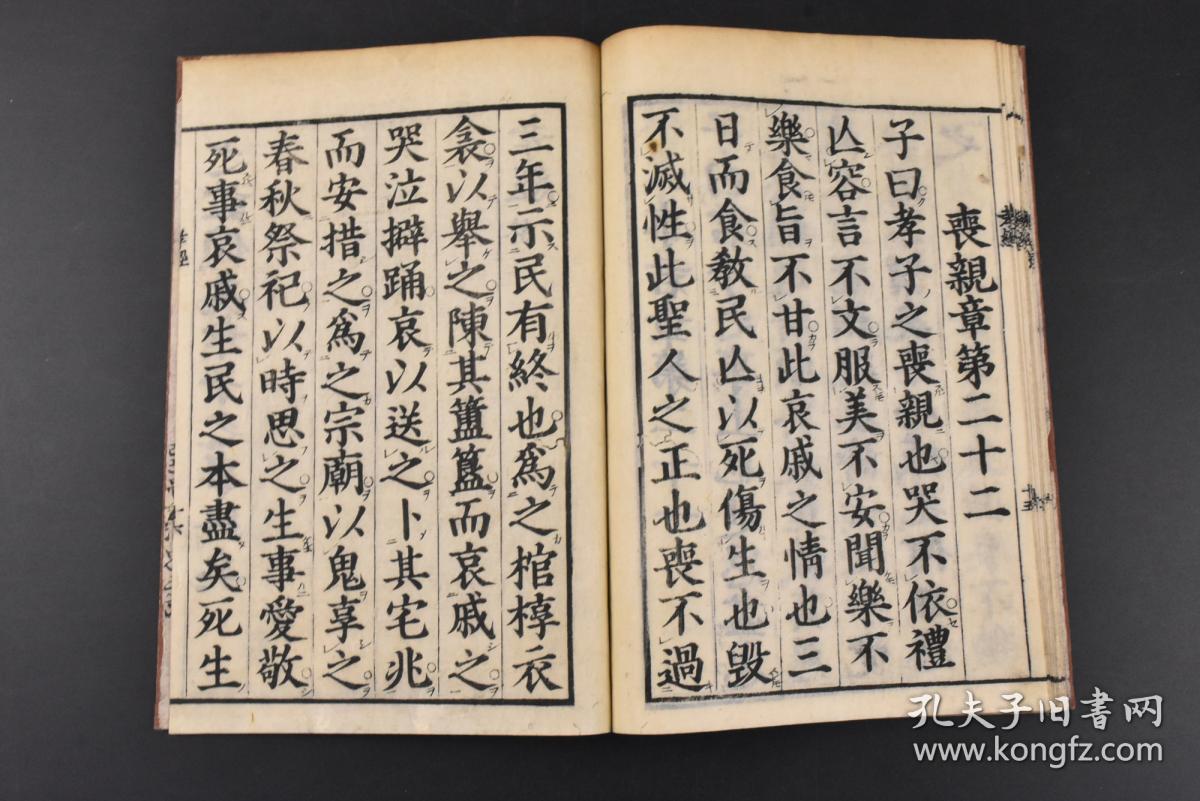 喪親章第二十二
子曰孝子之喪親也哭不依禮
亾容言不文服美不安聞樂不
樂食旨不甘此哀戚之情也三
日而食敎民亾以死傷生也毀
不滅性此聖人之正也喪不過
三年示民有終也爲之棺椁衣
衾以舉之陳其簠簋而哀戚之
哭泣擗踊哀以送之卜其宅兆
而安措之爲之宗廟以鬼享之
春秋祭祀以時思之生事愛敬
死事哀戚生民之本盡矣死生
孔夫子旧書网
www.kongfz.com